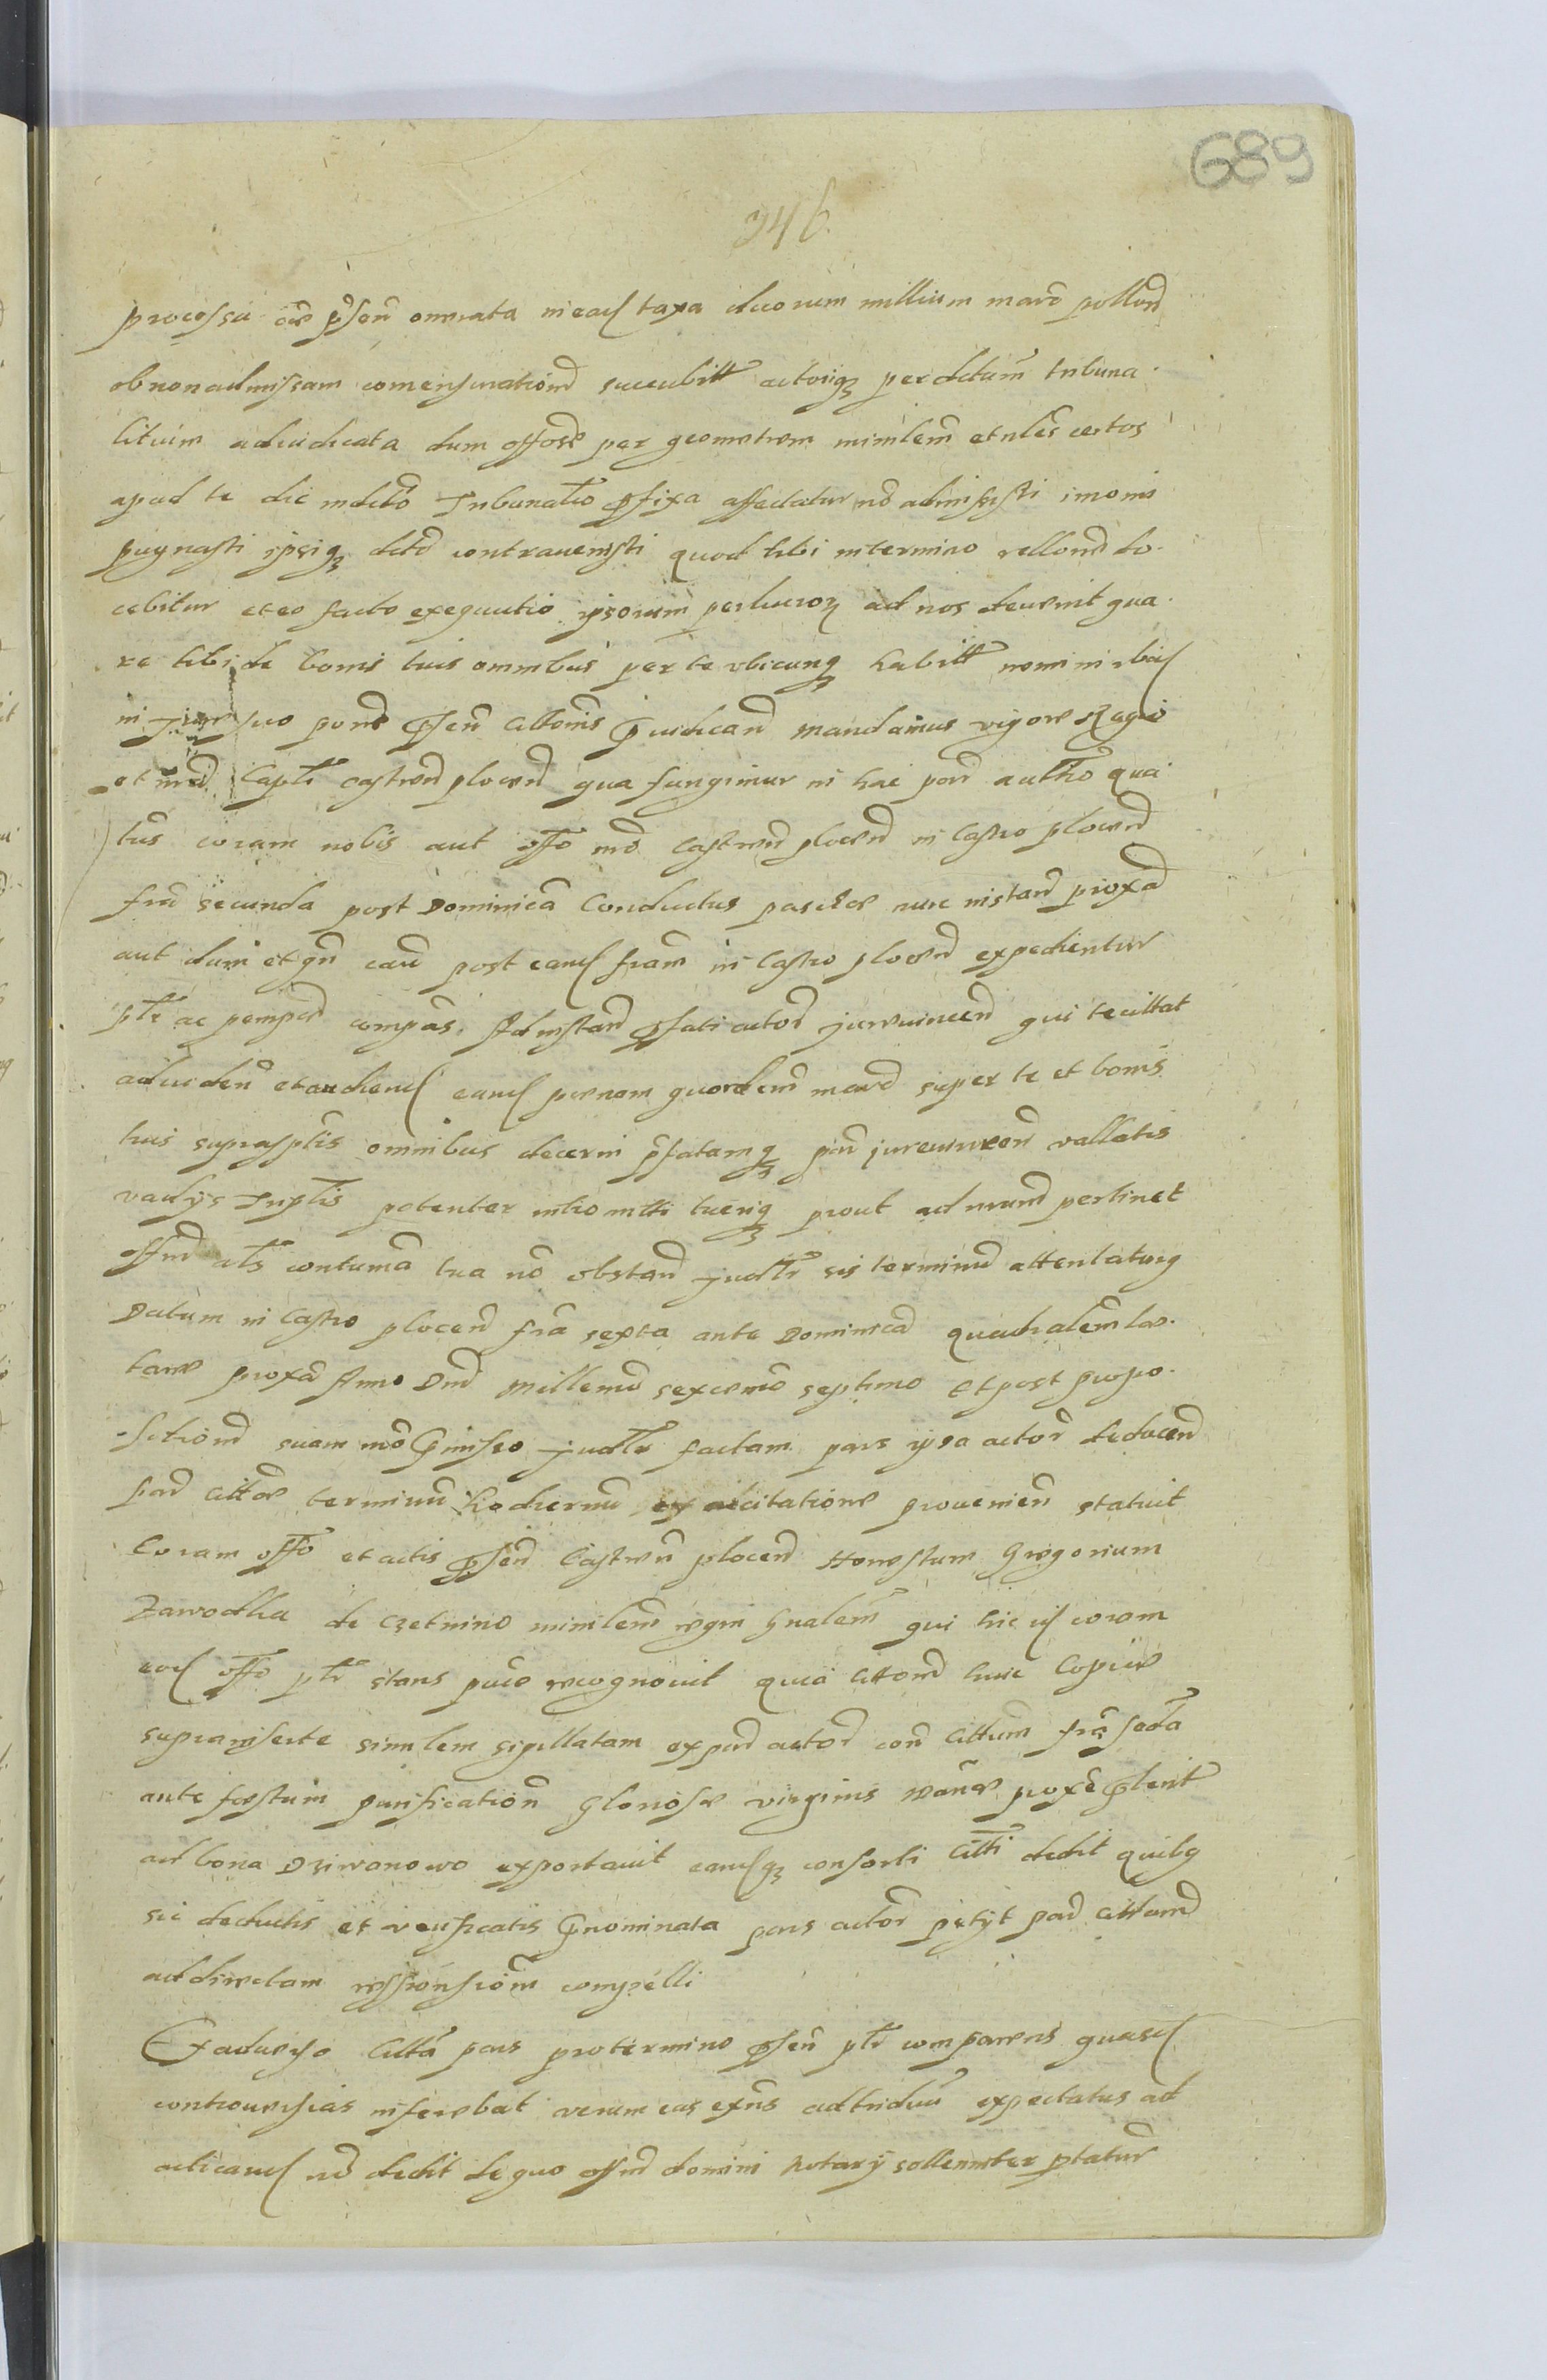 689
346.
processu om̃e p̃sen onerata in ead taxa duorum millium marc pollon
ob non admissam comensurationẽ succubitt actoriq perdictum tribuna
litium adiudicata dum offose per geometram minilem et nles certos
apud te die in dicto Tribunalio p̃fixa affectatur nõ admisisti imo in
pugnasti ipsiq dict contrauenisti quod tibi in termino rellond do
cebitur et eo facto exequutio ipsorum per lucroz ad nos deuenit qua
re tibi de bonis tuis omnibus per te vbicunq habitt nomini
in suo pond p̃sen Cittonis judicand mandamus vigore Regio
et nrad Captt castren plocen qua fungimur in hac par autho qua
tus coram nobis aut offo nrõ Castren plocen in Castro plocen
fria secunda post Dominica Conductus paschæ nunc instan proxã
aut dum et qñ cau post eand friam in Castro plocen expedientur
pttr ac pempt compãs. Ad instan p̃fati actor jurevincen qui te cittat
ad viden et audiend eand pœnam quordecim marc super te et bonis
tuis suprasptis omnibus decerni p̃fatamq par jurevincen vallatis
vadijs Insptis potenter intromitti tueriq prout ad nrum pertinet
offm als contuma tua nõ obstan judttr sis terminũ attentaturq
Datum in Castro plocen fria sexta ante Dominicã quadralem læ
tare proxã Anno Dnj Millemo sexcenmo septimo Et post propo
sitionẽ suam mõ p̃misso judttr factam pars ipsa actor deducen
par citta terminũ hodiernũ ex citatione prouenien statuit
Coram offo et actis p̃sen Castren plocen Honestum Gregorium
Zawodka de Czetnino minilem regni Gnalem qui hic id coram
eod offo pttr stans pũce recognouit quia Cittonẽ huic Copiæ
suprainserte similem sigillatam ex par actor con Cittum fria scda
ante festum purification Gloriosæ virginis Mariæ proxe p̃terit
ad bona Dziwanowo exportauit eandq consorti Citti dedit quibq
sic deductis et verificatis p̃nominata pars actor petijt par cittam
ad directam responsionem compelli
Ex aduerso Citta pars pro termino p̃sen pttr comparens quasd
controuersias inferebat verum eas exñs ad triduũ expectatus ad
acticand nõ dedit de quo offm domini Notarij sollenniter ptatur